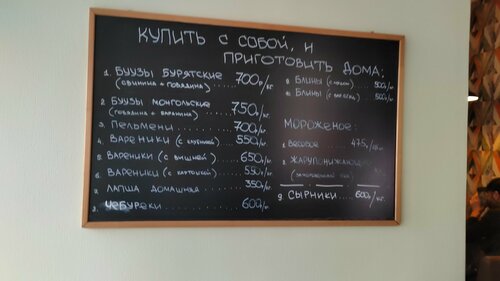 КУПИТЬ С СОБОЙ, И
ПРИГОТОВИТЬ ДОМА:
1. БУУЗЫ БУРЯТСКИЕ 700р/кг.
(свинина + говядина)
2 БУУЗЫ МОНГОЛЬСКИЕ 750р/кг.
(говядина + баранина)
3. ПЕЛЬМЕНИ 700р/кг
4. ВАРЕНИКИ (с клубникой) 550р/кг
5. ВАРЕНИКИ (с вишней) 650р/кг
6. ВАРЕНИКИ (с картошкой) 550р/кг
7. ЛАПША ДОМАШНЯЯ 350р/кг
8. ЧЕБУРЕКИ 600р/кг
БЛИНЫ 500р/кг
БЛИНЫ 500р/кг
МОРОЖЕНОЕ:
1. ВЕСОВОЕ 475р/кг
2. ЖАРУПОНИЖАЮЩЕЕ
9 СЫРНИКИ 600р/кг.